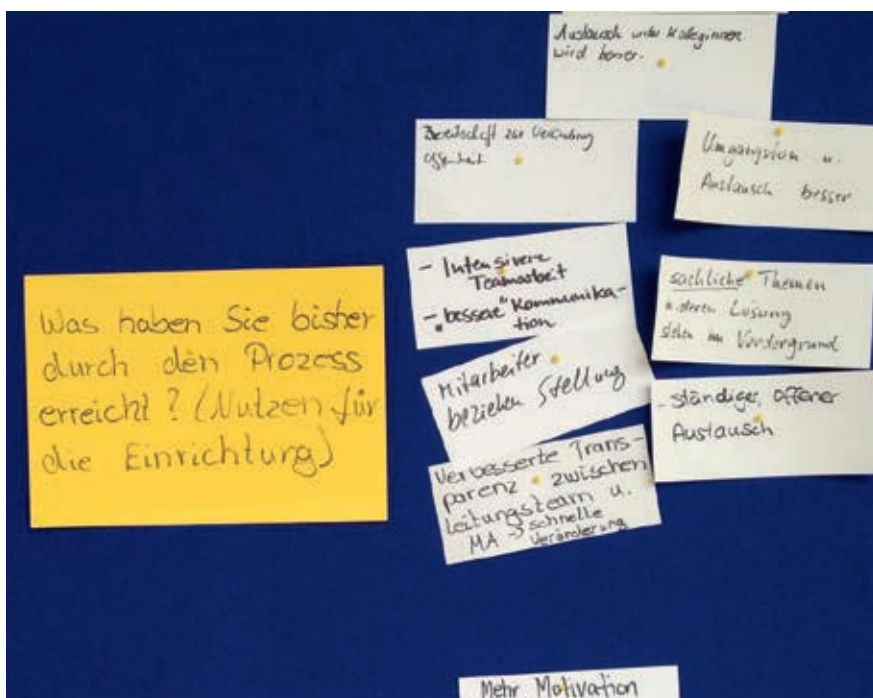 Was haben Sie bisher
durch den Prozess
erreicht? (Nutzen für
die Einrichtung)
Austausch unter Kolleginnen
wird besser.
Bereitschaft zur Veränderung
offenheit
Umgangston u.
Austausch besser
- Intensivere
Teamarbeit
- "bessere" Kommunika-
tion
sachliche Themen
u. deren Lösung
stehen im Vordergrund
Mitarbeiter
beziehen Stellung
- ständiger, offener
Austausch
Verbesserte Trans-
parenz zwischen
Leitungsteam u.
MA -> schnelle
Veränderung
Mehr Motivation